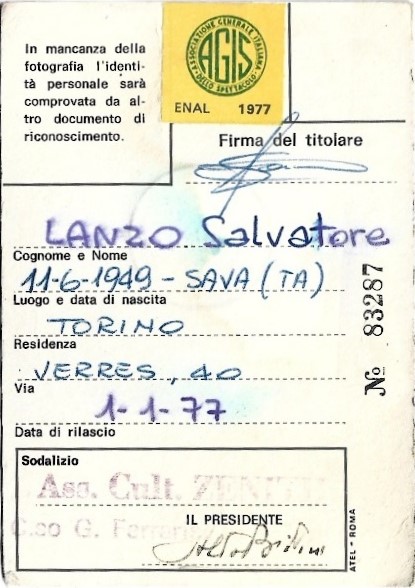 In mancanza della
fotografia l'identi-
tà personale sarà
comprovata da al-
tro documento di
riconoscimento.
ASSOCIAZIONE GENERALE ITALIANA
DELLO SPETTACOLO
AGIS
ENAL 1977
Firma del titolare
LANZO Salvatore
Cognome e Nome
11-6-1949 - SAVA (TA)
Luogo e data di nascita
TORINO
Residenza
VERRES, 40
Via
1-1-77
Data di rilascio
№ 83287
Sodalizio
Ass. Cult. ZENITH
C.so G. Ferraris
IL PRESIDENTE
ATEL - ROMA